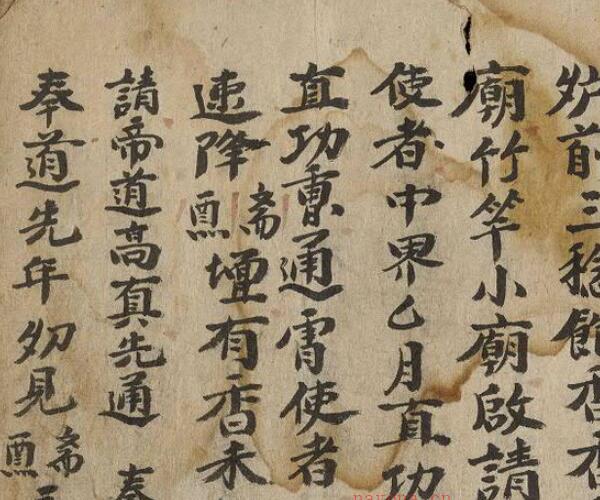 炉前三穏館香香
廟竹竿小廟啟請
使者中界乙月直功
直功重通霄使者
速降 斋 壇有香未
請帝道高真先通 奉
奉道先年初見 斋